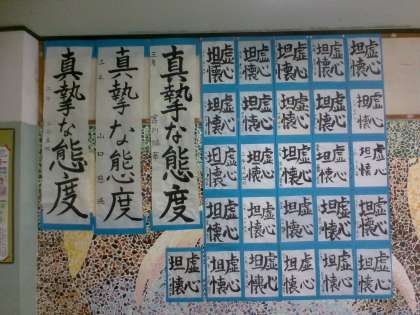 真摯な態度
真摯な態度
真摯な態度
虚心
坦懐
虚心
坦懐
虚心
坦懐
虚心
坦懐
虚心
坦懐
虚心
坦懐
虚心
坦懐
虚心
坦懐
虚心
坦懐
虚心
坦懐
虚心
坦懐
虚心
坦懐
虚心
坦懐
虚心
坦懐
虚心
坦懐
虚心
坦懐
虚心
坦懐
虚心
坦懐
虚心
坦懐
虚心
坦懐
虚心
坦懐
虚心
坦懐
虚心
坦懐
虚心
坦懐
虚心
坦懐
虚心
坦懐